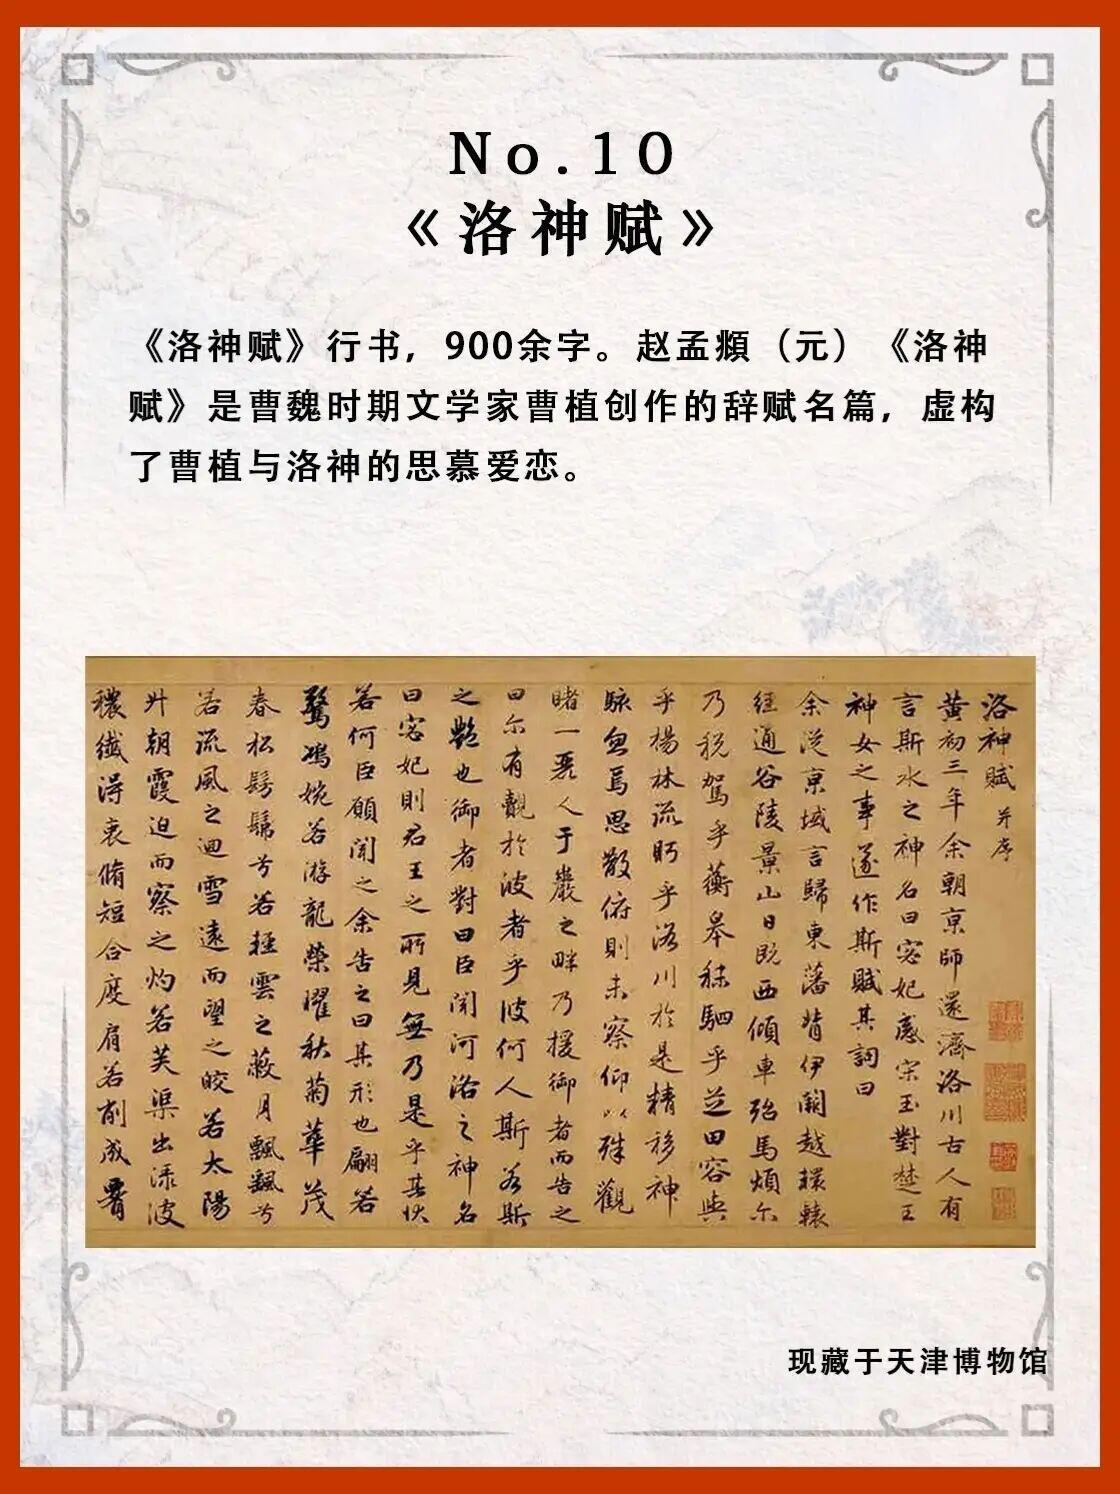 No.10
《洛神赋》
《洛神赋》行书，900余字。赵孟頫（元）《洛神
赋》是曹魏时期文学家曹植创作的辞赋名篇，虚构
了曹植与洛神的思慕爱恋。
洛神赋 并序
黄初三年余朝京師還濟洛川古人有
言斯水之神名曰宓妃感宋玉對楚王
神女之事遂作斯賦其詞曰
余從京域言歸東藩背伊闕越轘轅
經通谷陵景山日既西傾車殆馬煩尔
乃税駕乎蘅皋秣駟乎芝田容與
乎楊林流眄乎洛川於是精移神
駭忽焉思散俯則未察仰以殊觀
睹一麗人于巖之畔乃援御者而告之
曰尔有覿於彼者乎彼何人斯若斯
之艷也御者對曰臣聞河洛之神名
曰宓妃則君王之所見無乃是乎其状
若何臣願聞之余告之曰其形也翩若
驚鴻婉若游龍榮耀秋菊華茂
春松髣髴兮若輕雲之蔽月飄飄兮
若流風之迴雪遠而望之皎若太陽
升朝霞迫而察之灼若芙渠出渌波
穠纖得衷脩短合度肩若削成署
现藏于天津博物馆